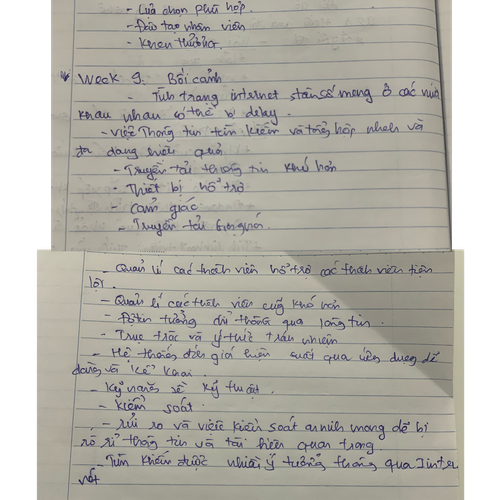 - Lựa chọn phù hợp.
- Đào tạo nhân viên
- Khen thưởng.
Week 9. Bối cảnh
- Tình trạng internet mạng ở các
khác nhau có thể bị delay.
- Việc thông tin tìm kiếm và tổng hợp nhanh và
đa dạng hiệu quả.
- Truyền tải thông tin khó hơn
- Thiết bị hỗ trợ
- Cảm giác.
- Truyền tải
- Quản lí các thành viên hỗ trợ các thành viên tiện
lợi.
- Quản lí các thành viên cũng khó hơn
- tin tưởng chỉ thông qua lòng tin.
- Trục trặc và ý thức trách nhiệm
- Hệ thống đánh giá hiệu suất qua ứng dụng dễ
dàng và kê khai.
- Kỹ năng về kỹ thuật.
- Kiểm soát.
- rủi ro và việc kiểm soát an ninh mạng dễ bị
rò rỉ thông tin và tài liệu quan trọng.
- Tìm kiếm được nhiều ý tưởng thông qua Inter
net